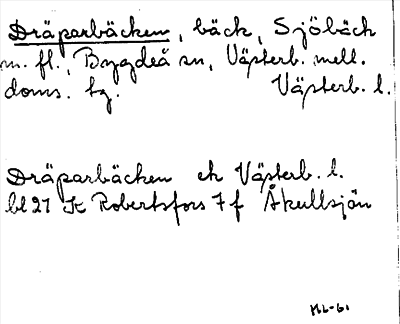 Dräparbäcken, bäck, Sjöbäck
m. fl., Bygdeå sn, Västerb. mell.
doms. tg. Västerb. l.
Dräparbäcken ek Västerb. l.
bl 21 St Robertsfors 7 f Åkullsjön